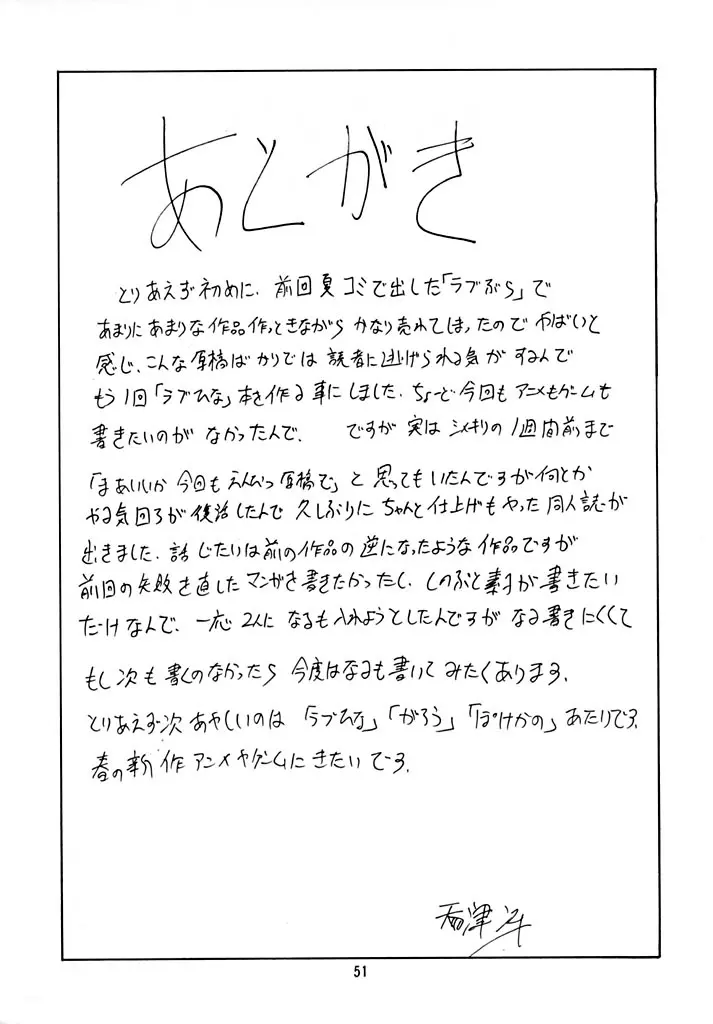 あとがき
とりあえず初めに、前回夏コミで出した「ラブぷら」で
あまりにあまりな作品作っときながらかなり売れてしまったのでやばいと
感じ、こんな原稿ばかりでは読者に逃げられる気がするんで
もう1回「ラブひな」本を作る事にしました。ちょーど今回もアニメもゲームも
書きたいのがなかったんで。ですが実はシメキリの1週間前まで
「まあいいか今回もえんぴつ原稿で」と思ってもいたんですが何とか
やる気回ろが復活したんで久しぶりにちゃんと仕上げもやった同人誌が
出きました。話じたいは前の作品の逆になったような作品ですが
前回の失敗を直したマンガを書きたかったし、しのぶと素子が書きたい
だけなんで、一応2人になるも入れようとしたんですがなる書きにくくて
もし次も書くのなかったら今度はなるも書いてみたくあります。
とりあえず次あやしいのは「ラブひな」「がろう」「ぽけかの」あたりです。
春の新作アニメやゲームにきたいです。
51